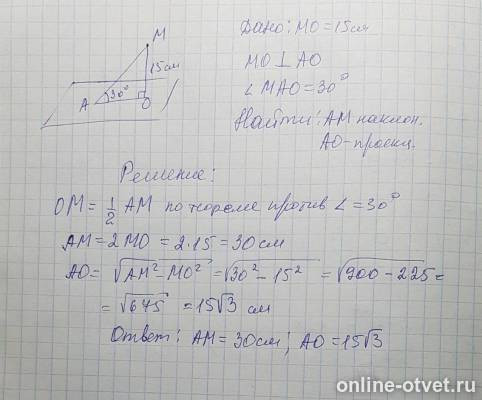 M
15см
A 30° O
Дано: MO = 15см
MO ⊥ AO
∠ MAO = 30°
Найти: AM наклон.
AO - проекц.
Решение:
OM = 1/2 AM по теореме против ∠ = 30°
AM = 2MO = 2·15 = 30 см
AO = √AM² - MO² = √30² - 15² = √900 - 225 =
= √675 = 15√3 см
Ответ: AM = 30см; AO = 15√3
online-otvet.ru